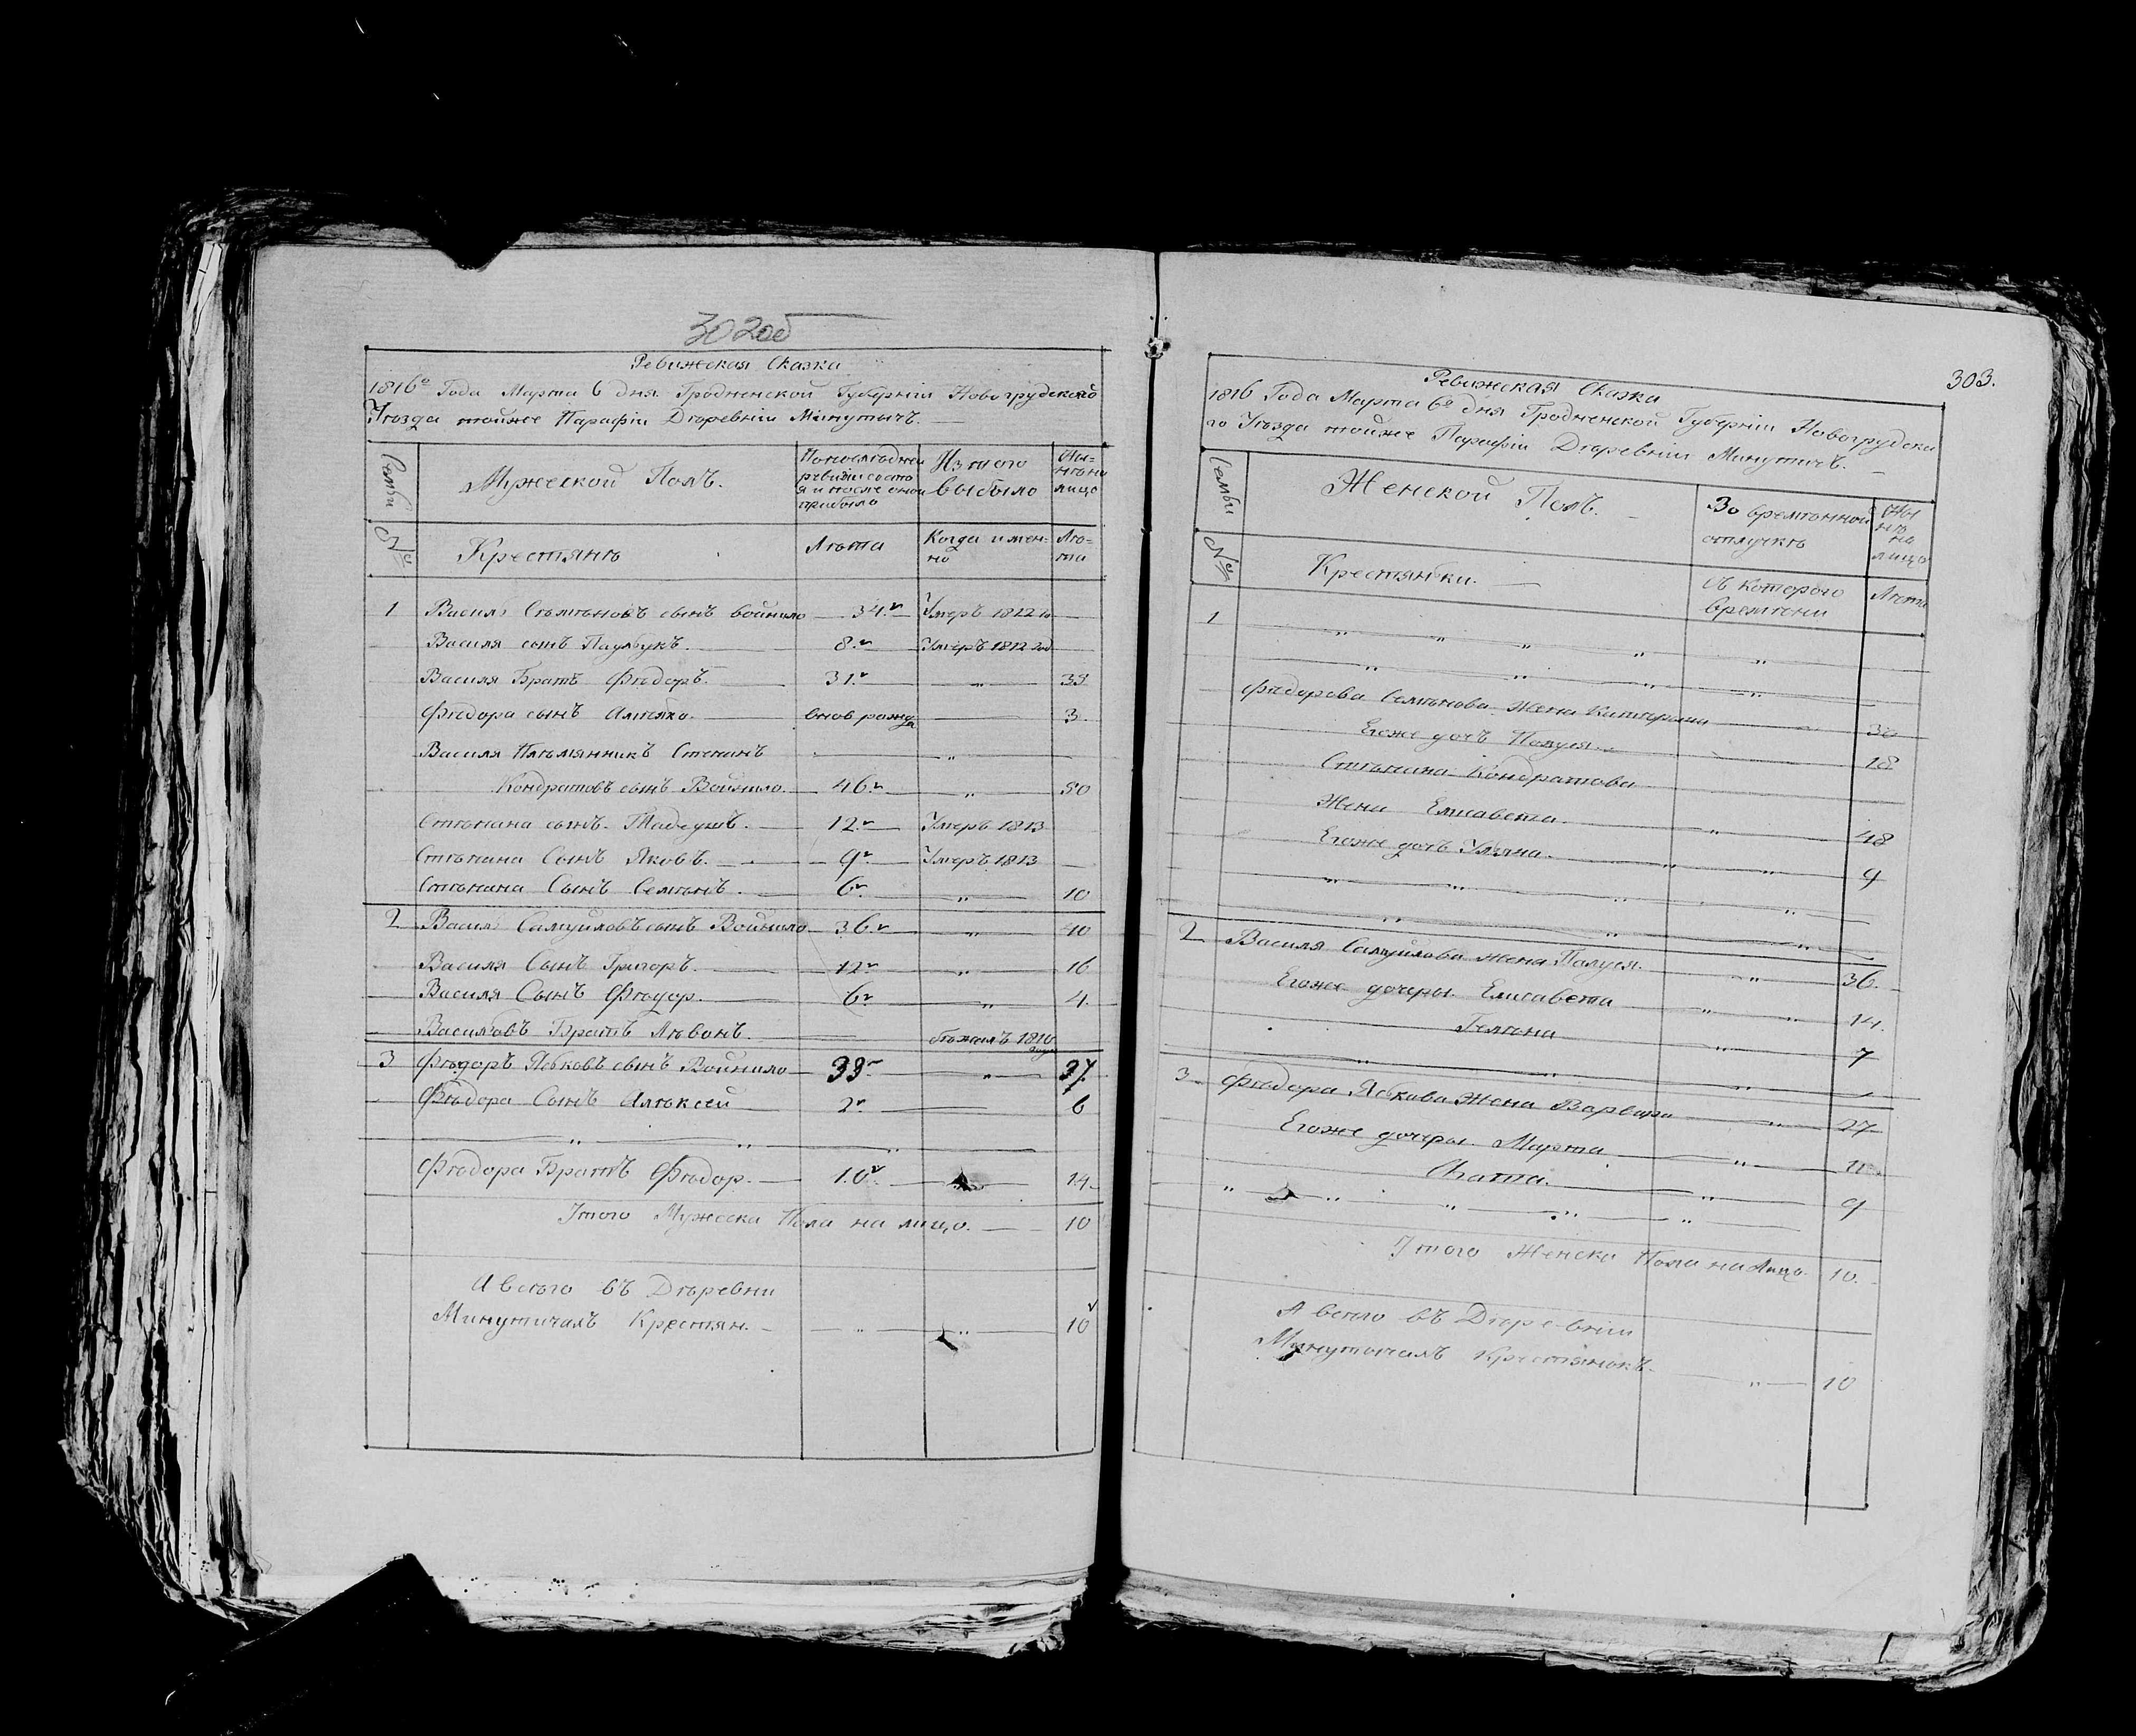 302об
Ревижская Сказка
1816го Года Марта 6 дня Гродненской Губернїи Новогрудского
Уѣзда тойже Парафіи Дѣревніи Минутичъ.
Семьи Мужеской Полъ. По последней ревизіи состояло и после оной прибыло Изтого выбыло Ны-нѣ на лицо
№ Крестянѣ Лѣта Когда имен-но Лѣ-та
1 Василь Сѣмѣновъ сынъ Войнило 34 Умеръ 1812 го
Василя сынъ 8 Умеръ 1812 год
Василя Братъ Фѣдоръ 31 „ 39
Фѣдора сынъ внов рожд 3
Василя Плѣмянникъ Степанъ „
Кондратовъ сынъ Войнило 46 „ 50
Стѣпана сынъ Тадеушъ. 12 Умеръ 1813
Стѣпана Сынъ Яковъ. 9 Умеръ 1813
Стѣпана Сынъ Семѣнъ. 6 „ 10
2 Василь Самуйловъ сынъ Войнило 36 „ 40
Василя Сынъ Григоръ. 12 „ 16
Василя Сынъ Фѣдор. 6 „ 4
Василіовъ Братъ Лѣвонъ. бѣжалъ 1810 года
3 Фѣдоръ Яковъ сынъ Войнило 33 „ 37
Фѣдора Сынъ Алѣксей 2 6
„ „ „
Фѣдора Братъ Фѣдор. 10 14
Итого Мужеска Пола на лицо. 10
А всѣго въ Дѣревни
Минутичахъ Крестян. „ „ 10
303.
Ревижская Сказка
1816 Года Марта 6го дня Гродненской Губерніи Новогрудска
го Уѣзда тойже Парафіи Дѣревніи Минутичъ.
Семьи Женской Полъ. Во времѣнной отлучкѣ Ны нѣ на лицо
№ Крестянки. Съ которого времѣни Лѣта
1 „ „ „ „ „
„ „ „ „
Фѣдорова Семѣнова Жена Катерина 30
Егоже дочъ Палуся 18
Стѣпана Кондратова
Жена Елисавета „ 48
Егоже дочъ Уляна. „ „ 9
„ „ „ „
„ „ „
2 Василя Самуйлова жена Палуся. „ 36.
Егоже дочеры Елисавета „ „ 14.
„ 7
„ „ „
3 Фѣдора Якова Жена Варвара „ 27
Егоже дочеры Марта „ 11
Агата. „ 9
„ „ „ „ „
Итого Женска Пола на Лицо. 10.
А всѣго въ Дѣревніи
Минутичахъ Крестянокъ. „ 10